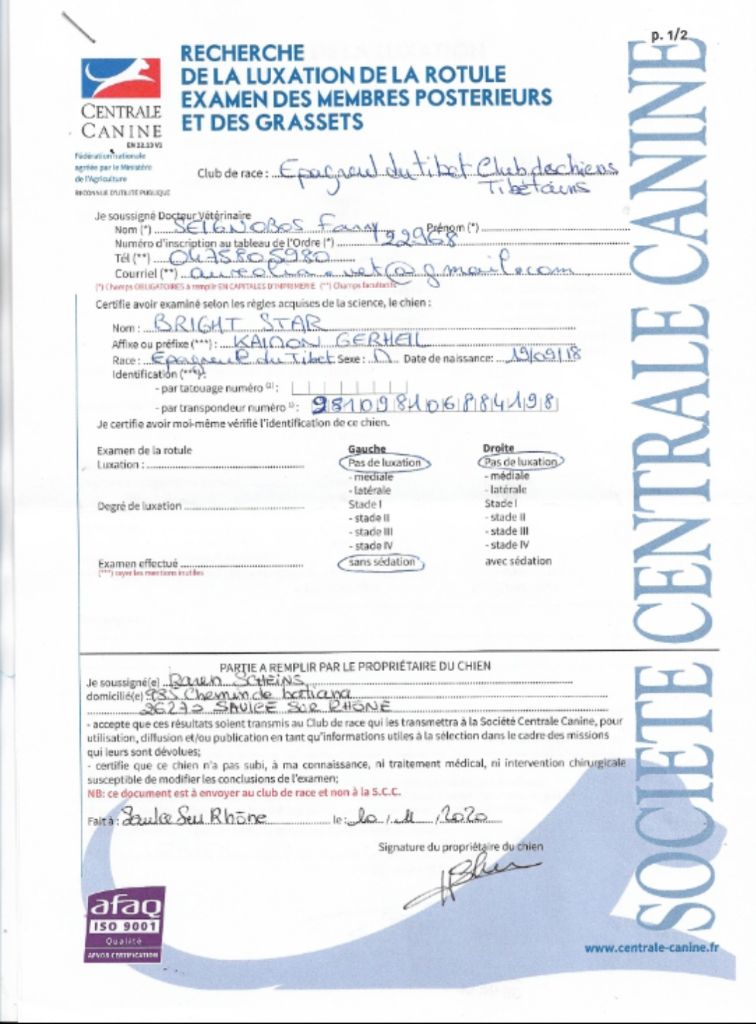 p. 1/2
RECHERCHE
DE LA LUXATION DE LA ROTULE
EXAMEN DES MEMBRES POSTERIEURS
ET DES GRASSETS
CENTRALE
CANINE
Fédération nationale
agréée par le Ministère
de l'Agriculture
RECONNUE D'UTILITE PUBLIQUE
Club de race : Epagneul du tibet Club des chiens
Tibétains
Je soussigné Docteur Vétérinaire
Nom (*) SEIGNOBOS Fanny Prénom (*)
Numéro d'inscription au tableau de l'Ordre (*) 22968
Tél (**) 0475805980
Courriel (**)
(*) Champs OBLIGATOIRES à remplir EN CAPITALES D'IMPRIMERIE (**) Champs facultatifs
Certifie avoir examiné selon les règles acquises de la science, le chien :
Nom : BRIGHT STAR
Affixe ou préfixe (***) : KAIMON GERHEIL
Race : Epagneul du Tibet Sexe : Date de naissance: 19/09/18
Identification (***):
- par tatouage numéro
- par transpondeur numéro : 981098106884198
Je certifie avoir moi-même vérifié l'identification de ce chien.
Examen de la rotule Gauche Droite
Luxation : Pas de luxation Pas de luxation
- médiale - médiale
- latérale - latérale
Degré de luxation Stade I Stade I
- stade II - stade II
- stade III - stade III
- stade IV - stade IV
Examen effectué sans sédation avec sédation
(***) rayer les mentions inutiles
PARTIE A REMPLIR PAR LE PROPRIÉTAIRE DU CHIEN
Je soussigné(e) SCHEINS
domicilié(e) 985 Chemin de
SAULCE SUR RHÔNE
- accepte que ces résultats soient transmis au Club de race qui les transmettra à la Société Centrale Canine, pour
utilisation, diffusion et/ou publication en tant qu'informations utiles à la sélection dans le cadre des missions
qui leurs sont dévolues;
- certifie que ce chien n'a pas subi, à ma connaissance, ni traitement médical, ni intervention chirurgicale
susceptible de modifier les conclusions de l'examen;
NB: ce document est à envoyer au club de race et non à la S.C.C.
Fait à : Saulce Sur Rhône le : 2020
Signature du propriétaire du chien
afaq
ISO 9001
Qualité
AFNOR CERTIFICATION
www.centrale-canine.fr
SOCIETE CENTRALE CANINE